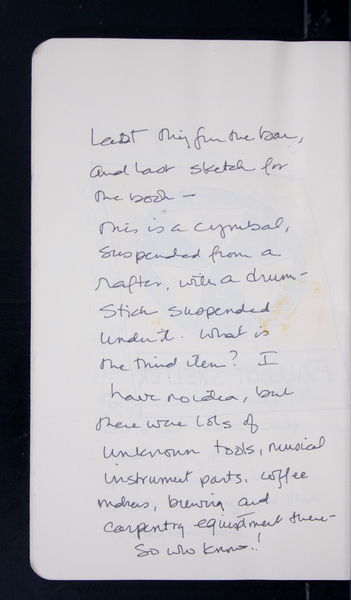 Last thing from the bar,
and last sketch for
the book —
This is a cymbal,
suspended from a
rafter, with a drum-
stick suspended
under it. What is
the third item? I
have no idea, but
there were lots of
unknown tools, musical
instrument parts, coffee
makers, brewing and
carpentry equipment there—
So who knows!